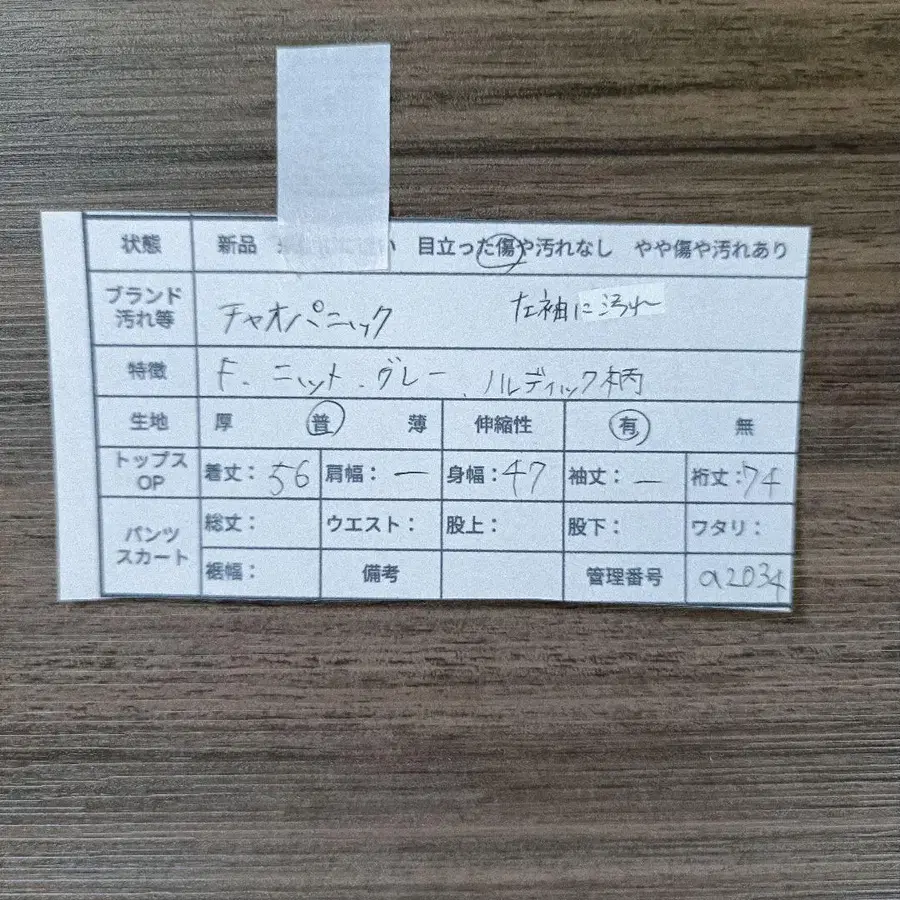 状態 新品 い 目立った傷や汚れなし やや傷や汚れあり
ブランド汚れ等 チャオパニック 左袖に汚れ
特徴 F. ニット.グレー.ノルディック柄
生地 厚 普 薄 伸縮性 有 無
トップスOP 着丈:56 肩幅:ー 身幅:47 袖丈:ー 裄丈:74
パンツスカート 総丈: ウエスト: 股上: 股下: ワタリ:
裾幅: 備考 管理番号 a2034